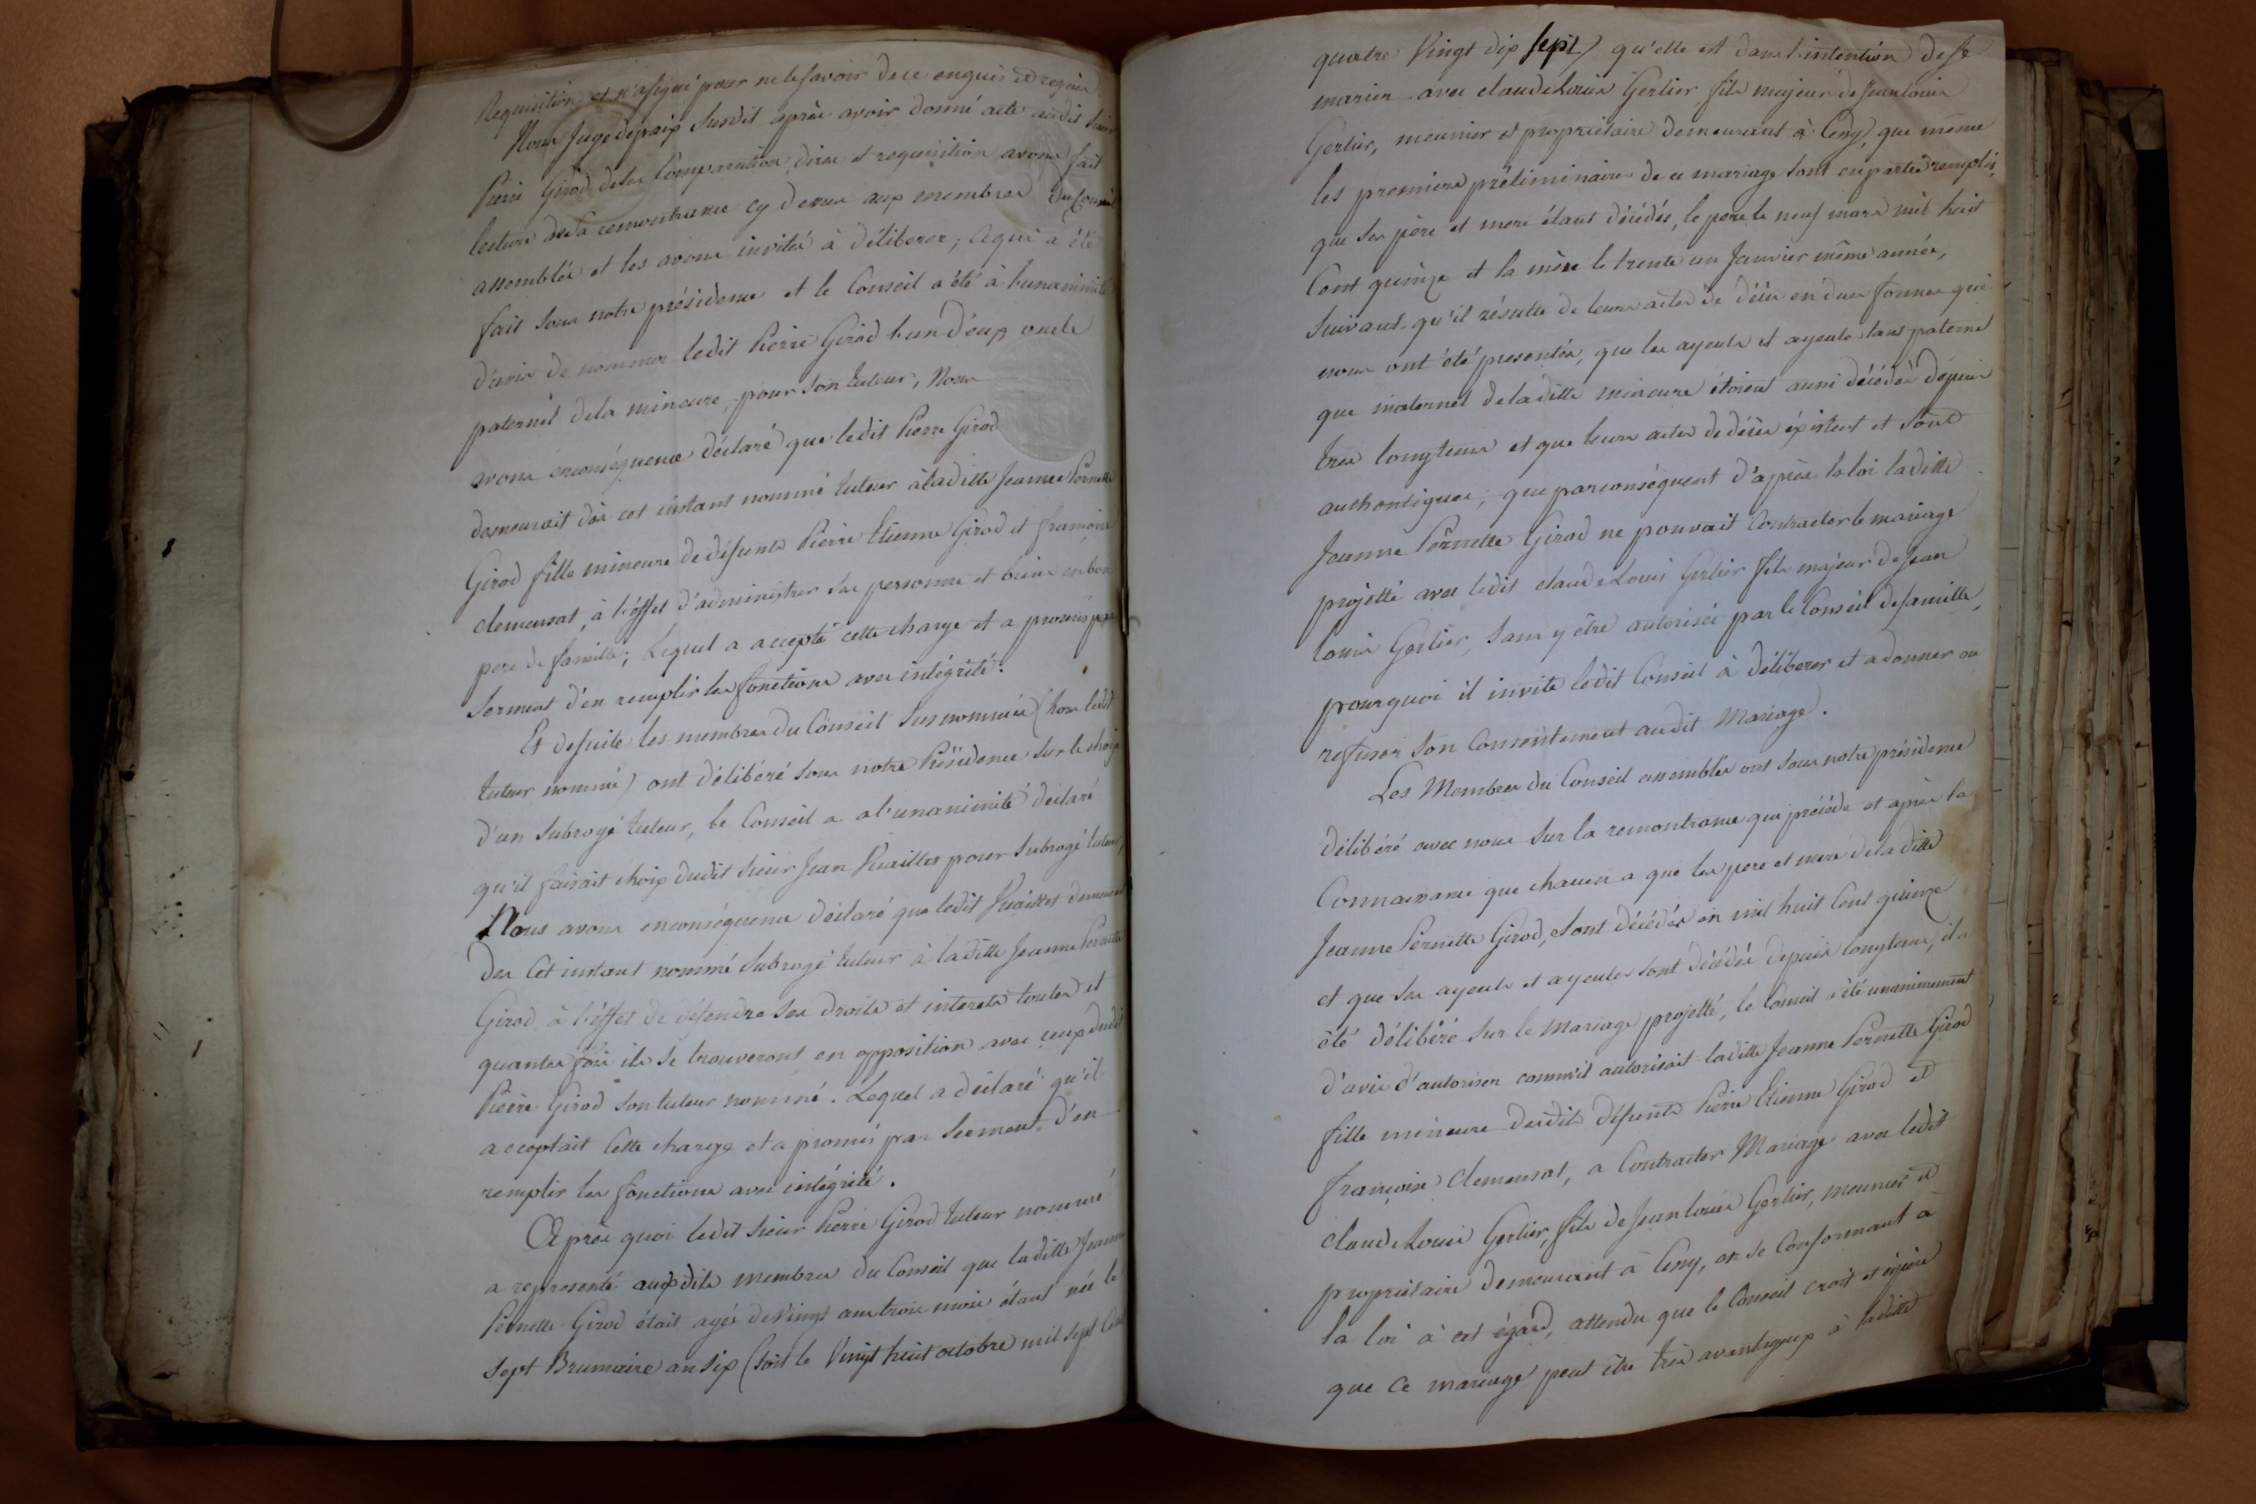 Requisition et n'a signé pour ne le savoir de ce enquis et requis
Nous Juge de paix susdit après avoir donné acte audit Sieur
Pierre Girod de la Comparution, dires et requisition avons fait
lecture de la remontrance cy dessus aux membres du Conseil
assemblés et les avons invités à déliberer, ce qui a été
fait sous notre présidence et le Conseil a été à l'unanimité
d'avis de nommer ledit Pierre Girod l'un d'eux oncle
paternel de la mineure, pour son tuteur, Nous
avons enconséquence déclaré que ledit Pierre Girod
demeurait dès cet instant nommé tuteur à ladite Jeanne Pernette
Girod fille mineure de défunts Pierre Etienne Girod et françoise
clemensat, à l'éffet d'administrer sa personne et biens en bon
pere de famille; Lequel a accepté cette charge et a promis par
serment d'en remplir les fonctions avec intégrité.
Et desuite les membres du Conseil susnommés (hors ledit
tuteur nommé) ont délibéré sous notre Présidence sur le choix
d'un subrogé tuteur, le Conseil a al'unanimité déclaré
qu'il faisait choix dudit sieur Jean Ruaillet pour subrogé tuteur,
Nous avons enconséquence déclaré que ledit Ruaillet demeurait
des Cet instant nommé subrogé tuteur à ladite Jeanne Pernette
Girod à l'éffet de défendre ses droits et interets toutes et
quantes fois ils se trouveront en opposition avec ceux dudit
Pierre Girod son tuteur nommé. Lequel a déclaré qu'il
acceptait Cette charge et a promis par serment d'en
remplir les fonctions avec intégrité.
Après quoi ledit Sieur Pierre Girod tuteur nommé
a representé auxdits membres du Conseil que ladite Jeanne
Pernette Girod était agée de Vingt ans trois mois étant née le
sept Brumaire an six (soit le Vingt huit octobre mil sept Cent
quatre Vingt dix sept) qu'elle est dans l'intention de se
marier avec claude Louis Gerlier fils majeur de Jean louis
Gerlier, meunier et propriétaire demeurant à Cessy, que même
les premiers préliminaires de ce mariage sont en partie remplis,
que ses père et mere étant décédés, le pere le neuf mars mil huit
Cent quinze et la mère le trente un Janvier même année,
suivant qu'il résulte de leurs actes de décès en dues formes qui
nous ont été presentés, que les ayeuls et ayeules tant paternel
que maternel de ladite mineure étoient aussi décédés depuis
tres longtems et que leurs actes de décès éxistent et sont
authentiques, que parconséquent d'après la loi ladite
Jeanne Pernette Girod ne pouvait Contracter le mariage
projetté avec ledit claude Louis Gerlier fils majeur de Jean
louis Gerlier, sans y être autorisée par le Conseil de famille,
pourquoi il invite ledit Conseil à déliberer et a donner ou
refuser son consentement audit Mariage.
Les Membres du Conseil assemblés ont sous notre présidence
délibéré avec nous sur la remontrance qui précède et après la
Connaissance que chacun a que les pere et mere de la dite
Jeanne Pernette Girod, sont décédés en mil huit Cent quinze
et que ses ayeuls et ayeules sont décédés depuis longtems, il a
été délibéré sur le Mariage projetté, le Conseil a été unanimement
d'avis d'autoriser comm'il autorisait ladite Jeanne Pernette Girod
fille mineure desdits défunts Pierre Etienne Girod et
françoise Clemensat, a Contracter Mariage avec ledit
claude Louis Gerlier, fils de Jean louis Gerlier, meunier et
propriétaire demeurant à Cessy, en se Conformant à
la loi à cet égard, attendu que le Conseil croit et éspere
que ce mariage peut être très avantageux à ladite